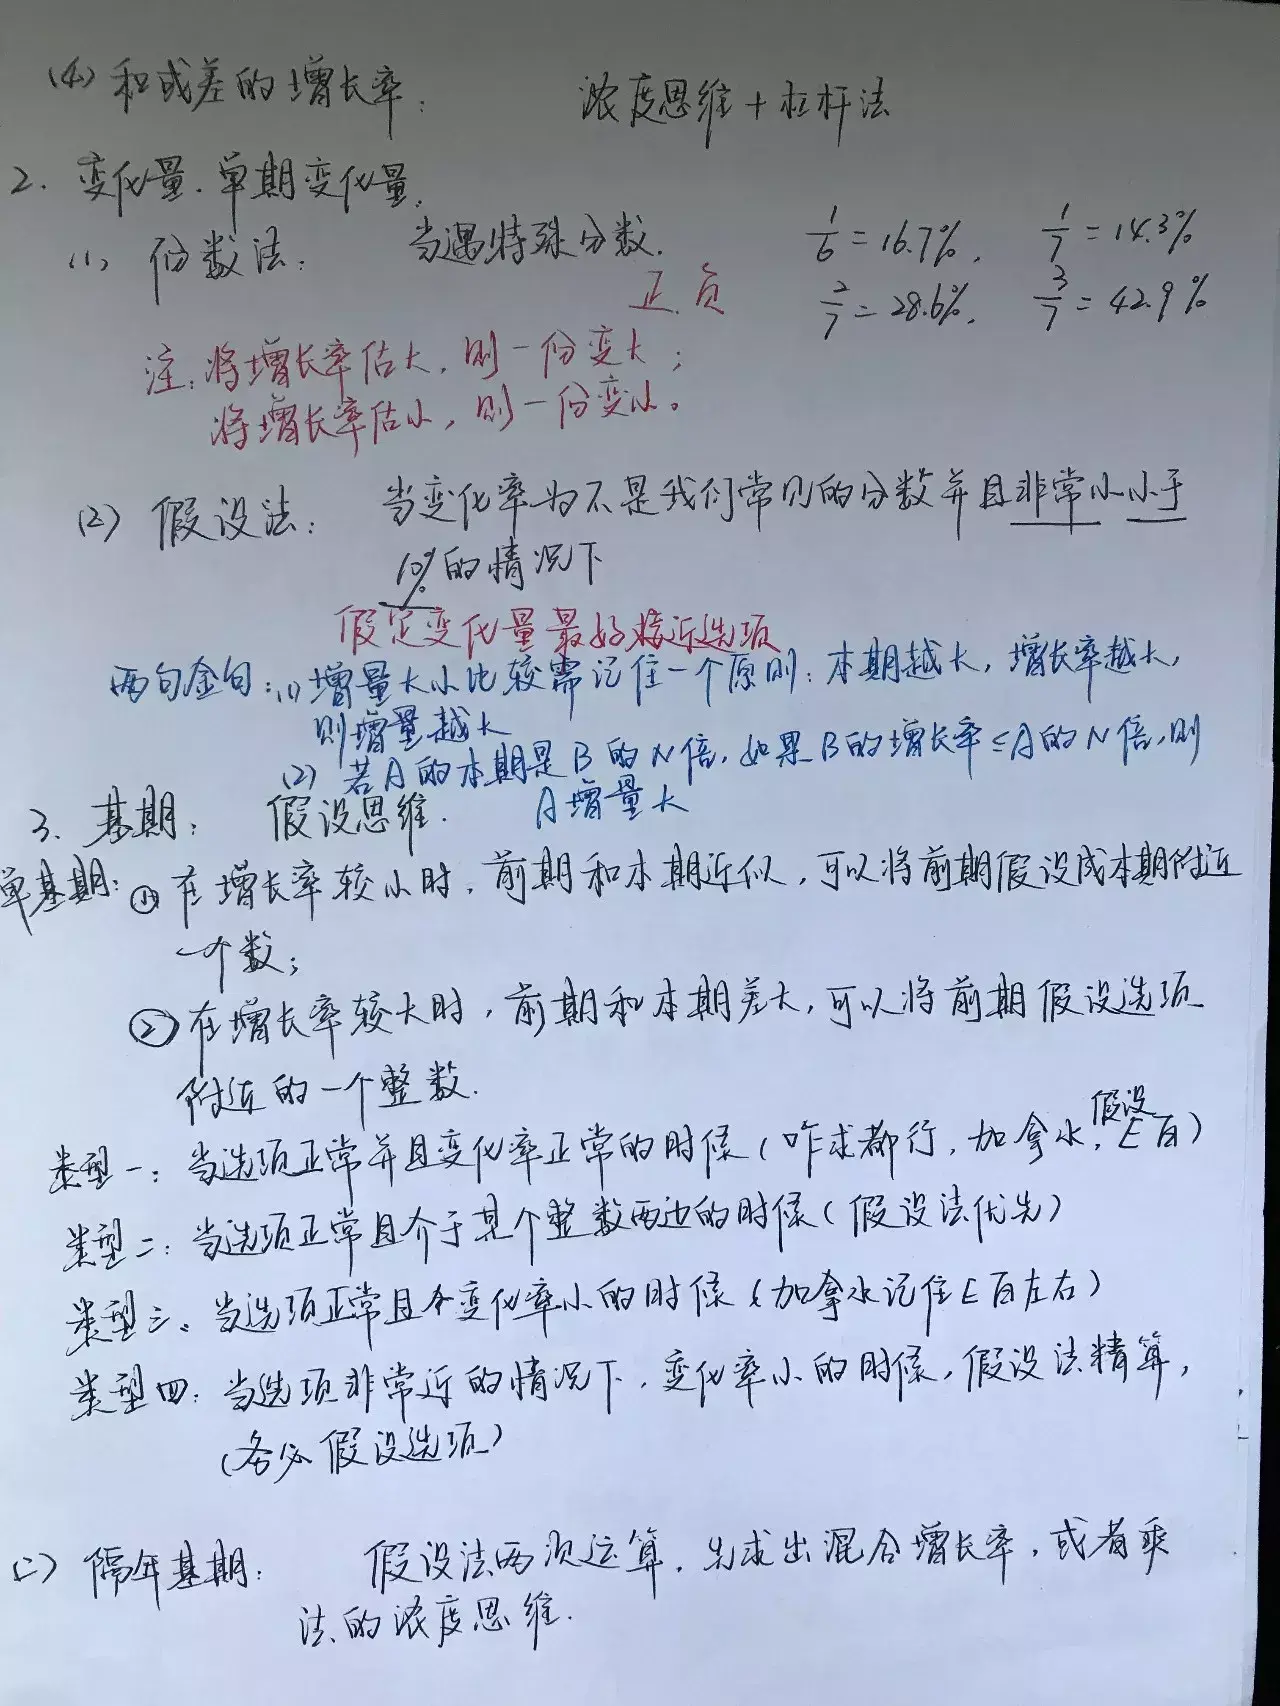 (4) 和或差的增长率: 浓度思维+杠杆法
2. 变化量.单期变化量.
(1) 份数法: 当遇特殊分数. 1/6=16.7%, 1/7=14.3%
正.负 2/7=28.6%, 3/7=42.9%
注:将增长率估大,则一份变大;
将增长率估小,则一份变小。
(2) 假设法: 当变化率为不是我们常见的分数并且非常小小于
10%的情况下
假定变化量最好接近选项
两句金句:(1)增量大小比较需记住一个原则:本期越大,增长率越大,
则增量越大
(2) 若A的本期是B的N倍,如果B的增长率≤A的N倍,则
A增量大
3. 基期: 假设思维.
单基期:①在增长率较小时,前期和本期近似,可以将前期假设成本期附近
一个数;
②在增长率较大时,前期和本期差大,可以将前期假设选项
附近的一个整数.
类型一:当选项正常并且变化率正常的时候(咋求都行,加拿水,假设E百)
类型二:当选项正常且介于某个整数两边的时候(假设法优先)
类型三:当选项正常且令变化率小的时候(加拿水记住E百左右)
类型四:当选项非常近的情况下,变化率小的时候,假设法精算,
(务必假设选项)
(二) 隔年基期: 假设法两次运算.先求出混合增长率,或者乘
法的浓度思维.